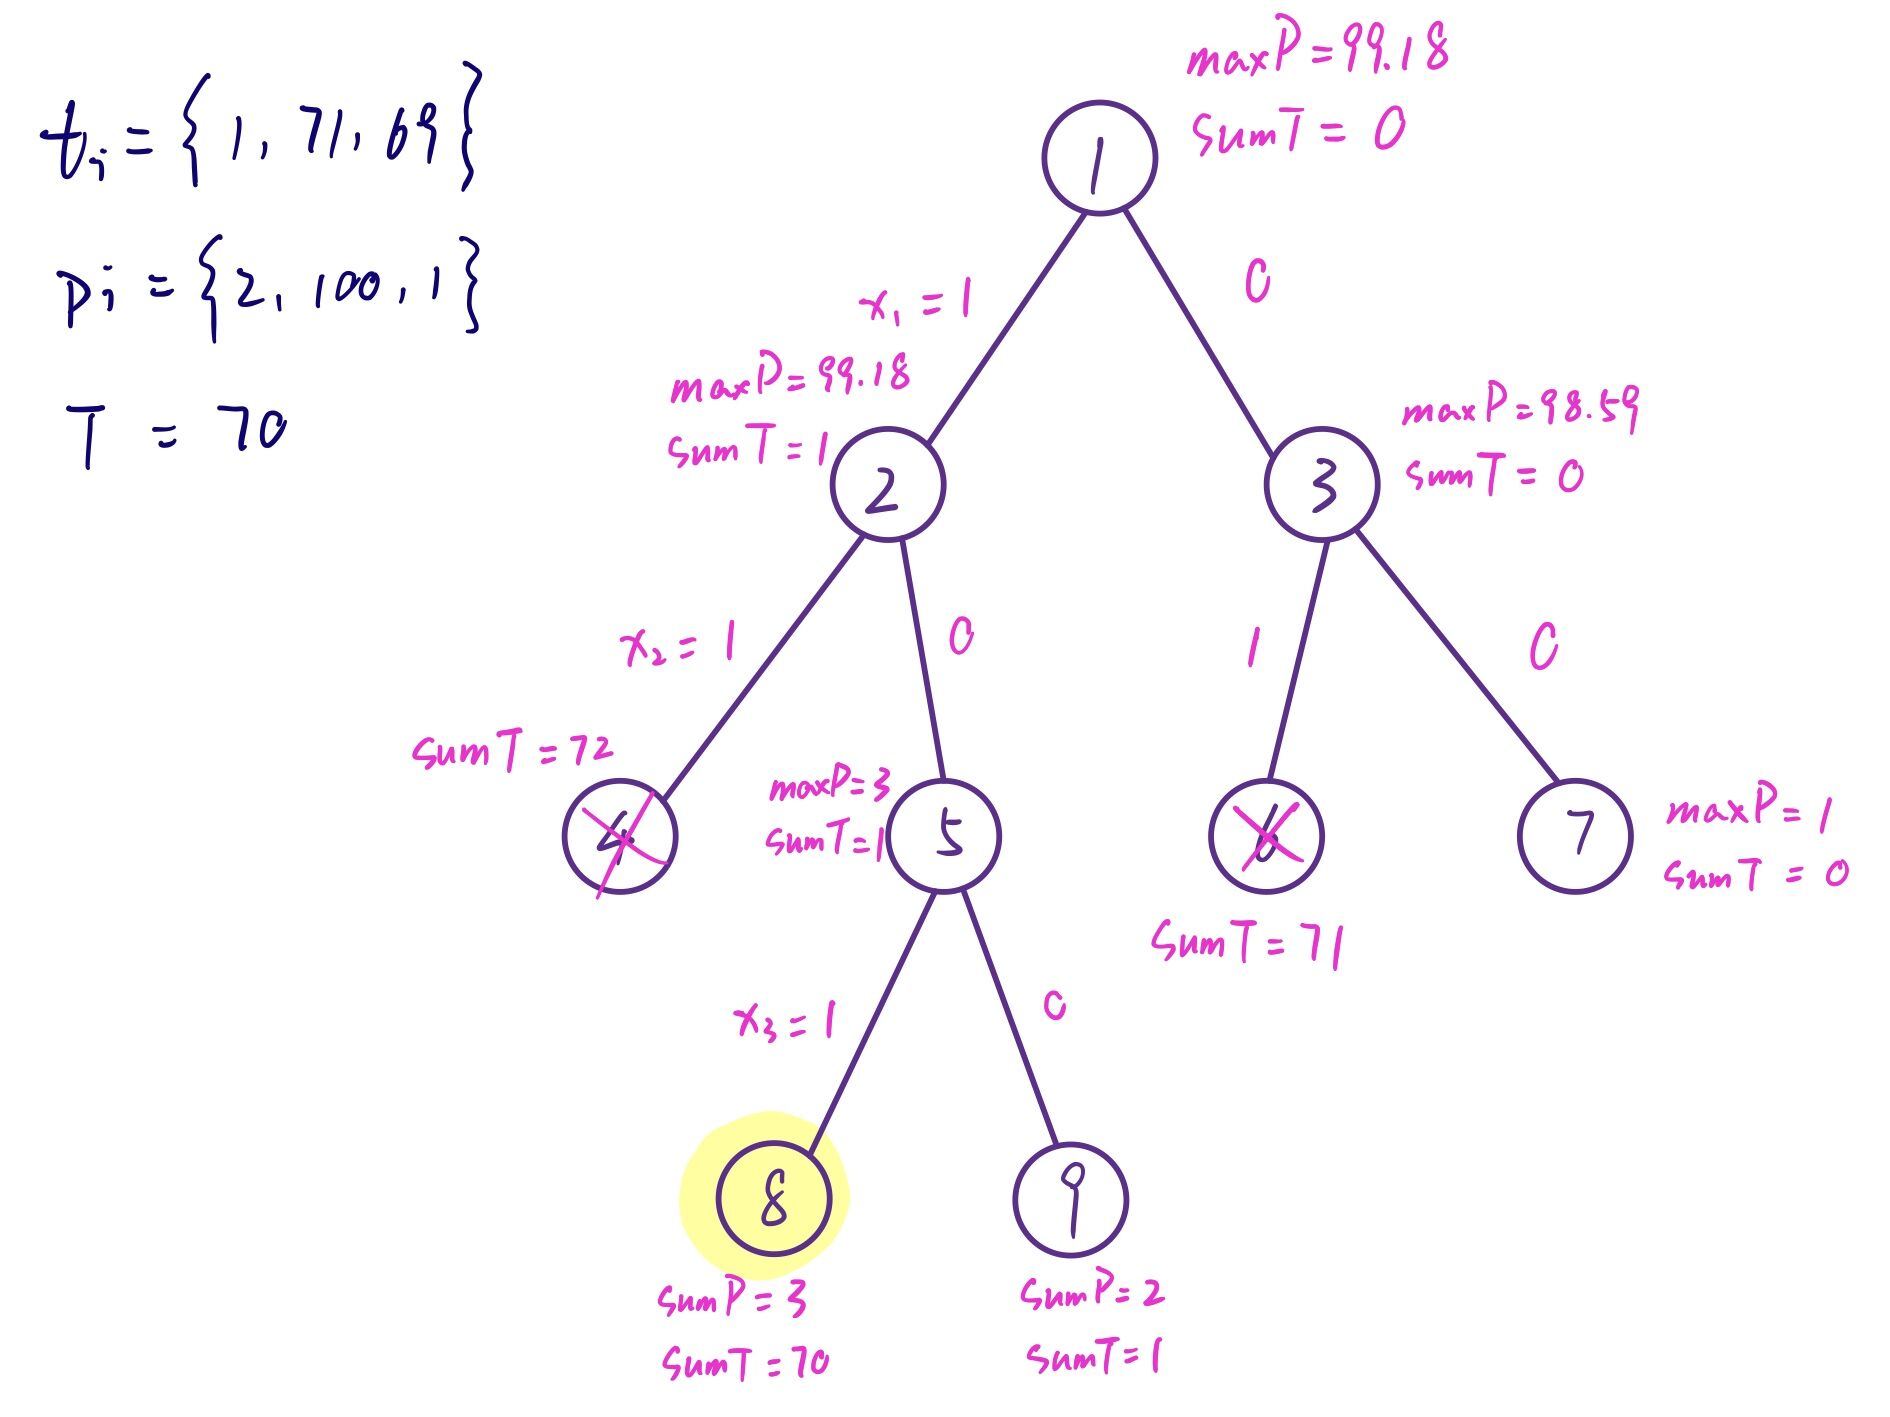 tᵢ = {1, 71, 69}
pᵢ = {2, 100, 1}
T = 70
maxP = 99.18
sumT = 0
1
x₁ = 1
0
maxP = 99.18
sumT = 1
2
maxP = 98.59
sumT = 0
3
x₂ = 1
0
1
0
sumT = 72
4
maxP = 3
sumT = 1
5
6
sumT = 71
7
maxP = 1
sumT = 0
x₃ = 1
0
8
sumP = 3
sumT = 70
9
sumP = 2
sumT = 1